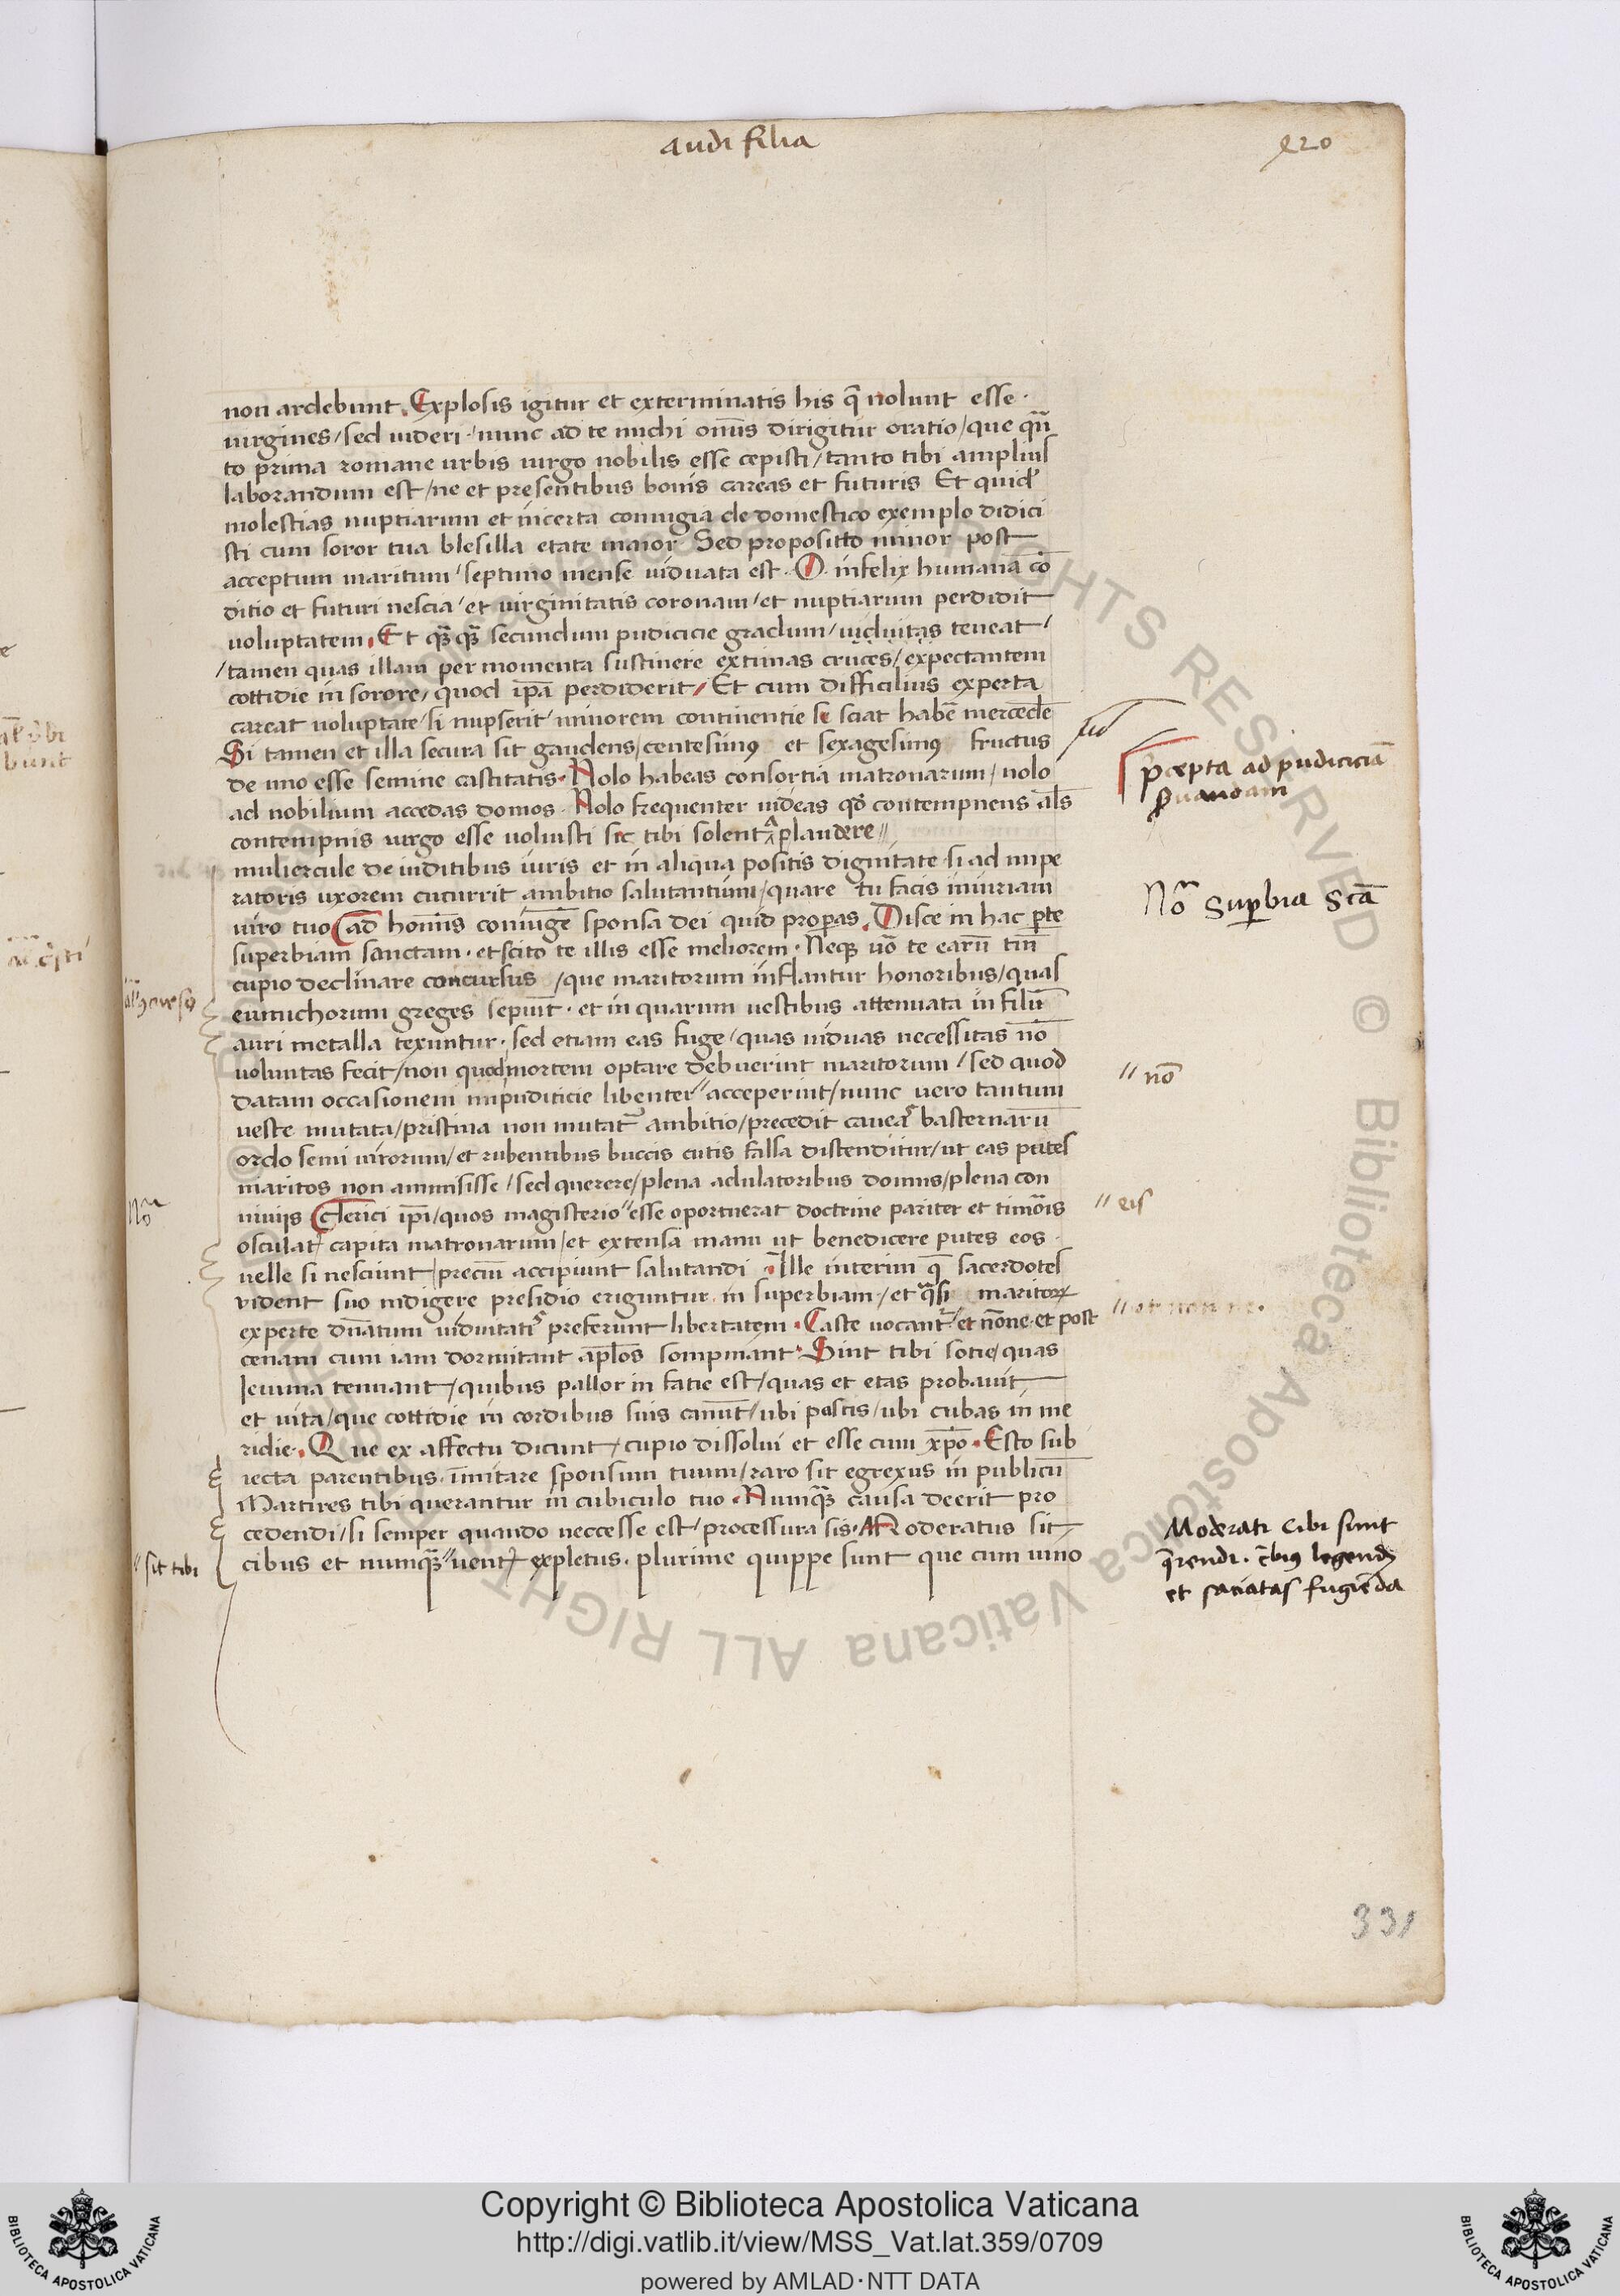 audi filia
220
non ardebunt. Explosis igitur et exterminatis his q̄ nolunt esse.
uirgines / sed uideri. / nunc ad te michi om̄is dirigitur oratio / que qūa
to prima romane urbis uirgo nobilis esse cepisti / tanto tibi amplius
laborandum est / ne et presentibus bonis careas et futuris Et quid'
molestias nuptiarum et incerta coniugia de domestico exemplo didici
sti cum soror tua blesilla etate maior Sed propositto minor post
acceptum maritum / septimo mense uiduata est. O. infelix humana cō
ditio et futuri nescia / et uirginitatis coronam / et nuptiarum perdidit
uoluptatem. Et qꝫqꝫ secundum pudicicie gradum / uiduitas teneat /
/ tamen quas illam per momenta sustinere extimas cruces / expectantem
cottidie in sorore / quod ip̄a perdiderit / Et cum difficilius experta
careat uoluptate / si nupserit / minorem continentie se sciat habē mercedē
Si tamen et illa secura sit gaudens / centesimꝰ et sexagesimꝰ fructus
de uno esse semine castitatis. Nolo habeas consortia matronarum / nolo
ad nobilium accedas domos. Nolo frequenter uideas qđ contempnens al̄s
contempnis uirgo esse uoluisti sic tibi solent ꝑlaudere //
a
muliercule de iuditibus iuris et in aliqua positis dignitate si ad impe
ratoris uxorem cucurrit ambitio salutantium / quare tu facis iniuriam
uiro tuo ad hom̄is coniugē sponsa dei quid properas. Disce in hac ꝑte
superbiam sanctam. et scito te illis esse meliorem. Neqꝫ uō te earū tm̄
cupio declinare concursus / que maritorum inflantur honoribus / quas
eunuchorum greges sepiūt. et in quarum uestibus attenuata in filū
auri metalla texuntur. sed etiam eas fuge / quas uiduas necessitas nō
uoluntas fecit / non quod mortem optare debuerint maritorum / sed quod
datam occasionem impuditicie libenter // acceperint / nunc uero tantum
ueste mutata / pristina non mutat᷑ ambitio / precedit caueas basternarū
ordo semi uirorum / et rubentibus buccis cutis falsa distenditur / ut eas putes
maritos non ammisisse / sed querere / plena adulatoribus domus / plena con
niuiis Clerici ip̄i / quos magisterio // esse oportuerat doctrine pariter et timōis
osculat᷑ capita matronarum / et extensa manu ut benedicere putes eos.
uelle si nesciunt / precium accipiunt salutandi. Ille interim q̄ sacerdotes
vident suo indigere presidio eriguntur in superbiam. / et q̄si maritoꝝ
experte dn̄atum uiduitatis preferunt libertatem. Caste uocant᷑ / et nōne. et post
cenam cum iam dormitant ap̄los sompniant. Sint tibi sotie / quas
Ieiunia tenuant / quibus pallor in fatie est / quas et etas probauit
et uita / que cottidie in cordibus suis canūt / ubi pascis / ubi cubas in me
ridie. Que ex affectu dicunt / cupio dissolui et esse cum xp̄o. Esto sub
iecta parentibus. īmitare sponsum tuum / raro sit egrexus in publicū
Martires tibi querantur in cubiculo tuo. Numqꝫ causa deerit pro
cedendi / si semper quando neccesse est / processura sis. Moderatus sit
cibus et numqꝫ // uent᷑ expletus. plurime quippe sunt que cum uino
p̄cepta ad pudiciciā
ẜuandam
Nōa Suꝑbia Scā
// nō
// eis
Nōa
// sit tibi
Moderati Cibi sunt
q̄rendi.
et sacietas fugiēda
331
Copyright © Biblioteca Apostolica Vaticana
http://digi.vatlib.it/view/MSS_Vat.lat.359/0709
powered by AMLAD·NTT DATA
BIBLIOTECA APOSTOLICA VATICANA
BIBLIOTECA APOSTOLICA VATICANA